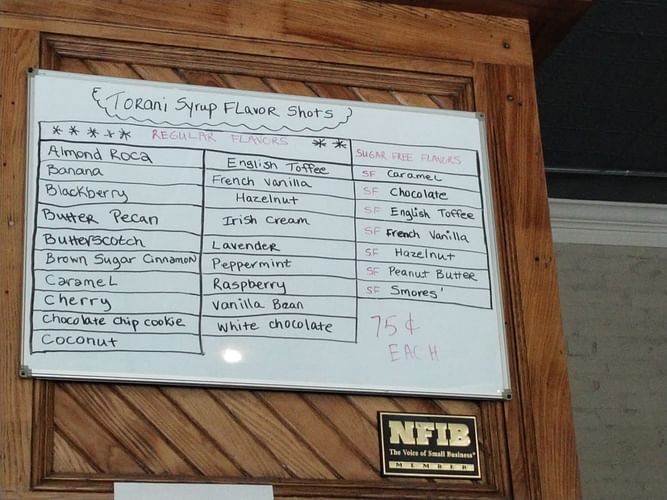 Torani Syrup Flavor Shots
***** REGULAR FLAVORS **
Almond Roca
Banana
Blackberry
Butter Pecan
Butterscotch
Brown Sugar Cinnamon
Caramel
Cherry
Chocolate chip cookie
Coconut
English Toffee
French Vanilla
Hazelnut
Irish Cream
Lavender
Peppermint
Raspberry
Vanilla Bean
White chocolate
SUGAR FREE FLAVORS
SF Caramel
SF Chocolate
SF English Toffee
SF French Vanilla
SF Hazelnut
SF Peanut Butter
SF Smores'
75¢
EACH
NFIB
The Voice of Small Business®
MEMBER